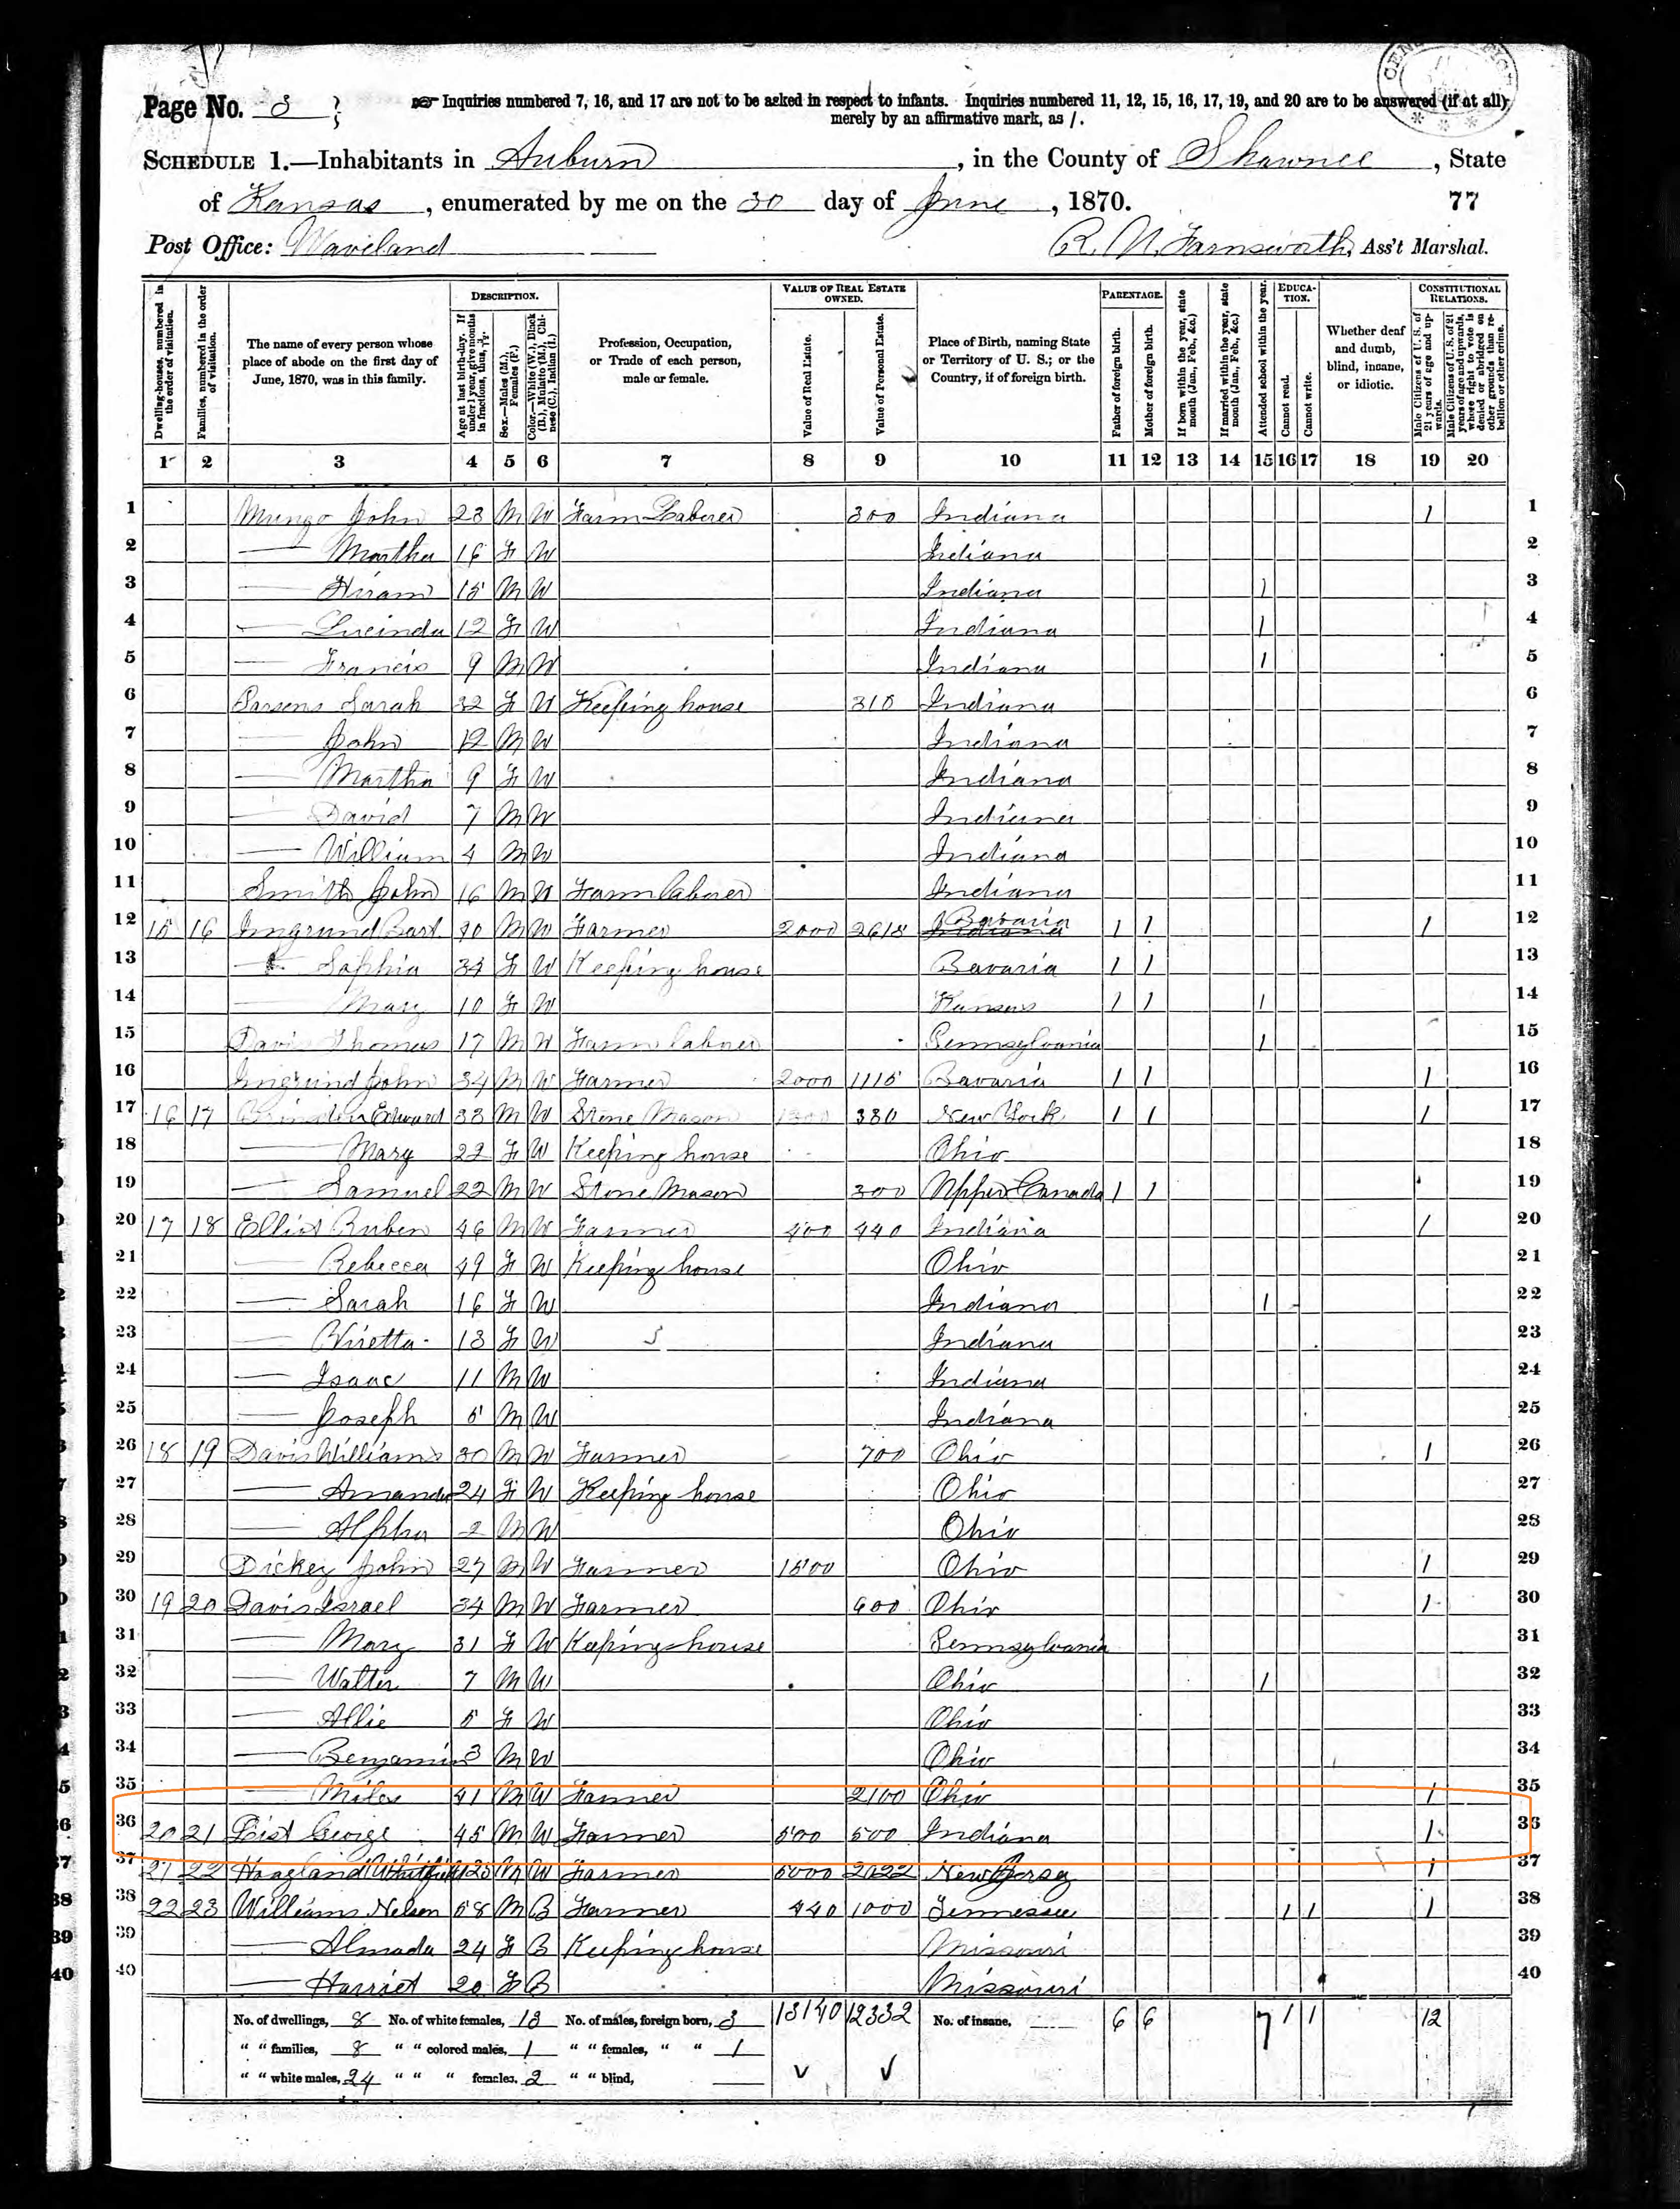 Page No. 8
Inquiries numbered 7, 16, and 17 are not to be asked in respect to infants. Inquiries numbered 11, 12, 15, 16, 17, 19, and 20 are to be answered (if at all)
merely by an affirmative mark, as /.
SCHEDULE 1.—Inhabitants in Auburn, in the County of Shawnee, State
of Kansas, enumerated by me on the 30 day of June, 1870. 77
Post Office: Waveland R. N. Farnsworth, Ass't Marshal.
DESCRIPTION. VALUE OF REAL ESTATE OWNED. PARENTAGE. EDUCATION. CONSTITUTIONAL RELATIONS.
Dwelling-houses, numbered in the order of visitation.
Families, numbered in the order of visitation.
The name of every person whose place of abode on the first day of June, 1870, was in this family.
Age at last birth-day. If under 1 year, give months in fractions, thus, 3/12.
Sex.—Males (M.), Females (F.)
Color.—White (W.), Black (B.), Mulatto (M.), Chinese (C.), Indian (I.)
Profession, Occupation, or Trade of each person, male or female.
Value of Real Estate.
Value of Personal Estate.
Place of Birth, naming State or Territory of U. S.; or the Country, if of foreign birth.
Father of foreign birth.
Mother of foreign birth.
If born within the year, state month (Jan., Feb., &c.)
If married within the year, state month (Jan., Feb., &c.)
Attended school within the year.
Cannot read.
Cannot write.
Whether deaf and dumb, blind, insane, or idiotic.
Male Citizens of U. S. of 21 years of age and upwards.
Male Citizens of U. S. of 21 years of age and upwards, whose right to vote is denied or abridged on other grounds than rebellion or other crime.
1 2 3 4 5 6 7 8 9 10 11 12 13 14 15 16 17 18 19 20
1 Mungo John 23 M W Farm Laborer 300 Indiana 1 1
2 — Martha 16 F W Indiana 2
3 — Hiram 15 M W Indiana 1 3
4 — Lucinda 12 F W Indiana 1 4
5 — Francis 9 M W Indiana 1 5
6 Parsens Sarah 32 F W Keeping house 310 Indiana 6
7 — John 12 M W Indiana 7
8 — Martha 9 F W Indiana 8
9 — David 7 M W Indiana 9
10 — William 4 M W Indiana 10
11 Smith John 16 M W Farm laborer Indiana 11
12 15 16 Imgrund Bart. M W Farmer 2000 2615 Indiana Bavaria 1 1 1 12
13 — Sophia 34 F W Keeping house Bavaria 1 1 13
14 — Mary 10 F W Kansas 1 1 1 14
15 Davis Thomas 17 M W Farm laborer Pennsylvania 1 15
16 Imgrund John 34 M W Farmer 2000 1115 Bavaria 1 1 1 16
17 16 17 Edward 33 M W Stone Mason 330 New York 1 1 1 17
18 — Mary 22 F W Keeping house Ohio 18
19 — Samuel 22 M W Stone Mason 300 Upper Canada 1 1 19
20 17 18 Elliot Ruben 46 M W Farmer 400 440 Indiana 1 20
21 — Rebecca 49 F W Keeping house Ohio 21
22 — Sarah 16 F W Indiana 1 22
23 — 13 F W Indiana 23
24 — Isaac 11 M W Indiana 24
25 — Joseph 5 M W Indiana 25
26 18 19 Davis William 30 M W Farmer 700 Ohio 1 26
27 — Amanda 24 F W Keeping house Ohio 27
28 — Alpha 2 M W Ohio 28
29 Dickey John 27 M W Farmer 1500 Ohio 1 29
30 19 20 Davis Israel 34 M W Farmer 600 Ohio 1 30
31 — Mary 31 F W Keeping house Pennsylvania 31
32 — Walter 7 M W Ohio 1 32
33 — Allie 5 F W Ohio 33
34 — Benjamin 3 M W Ohio 34
35 — Miles 41 M W Farmer 2100 Ohio 1 35
36 20 21 List George 45 M W Farmer 500 500 Indiana 1 36
37 21 22 Hoagland M W Farmer 5000 2022 New Jersey 1 37
38 22 23 Williams Nelson 58 M B Farmer 440 1000 Tennessee 1 1 1 38
39 — Almada 24 F B Keeping house Missouri 39
40 — Harriet 20 F B Missouri 40
No. of dwellings, 8 No. of white females, 13 No. of males, foreign born, 3 13140 12332 No. of insane, 6 6 7 1 1 12
" " families, 8 " " colored males, 1 " " females, " " 1
" " white males, 24 " " " females, 2 " " blind,